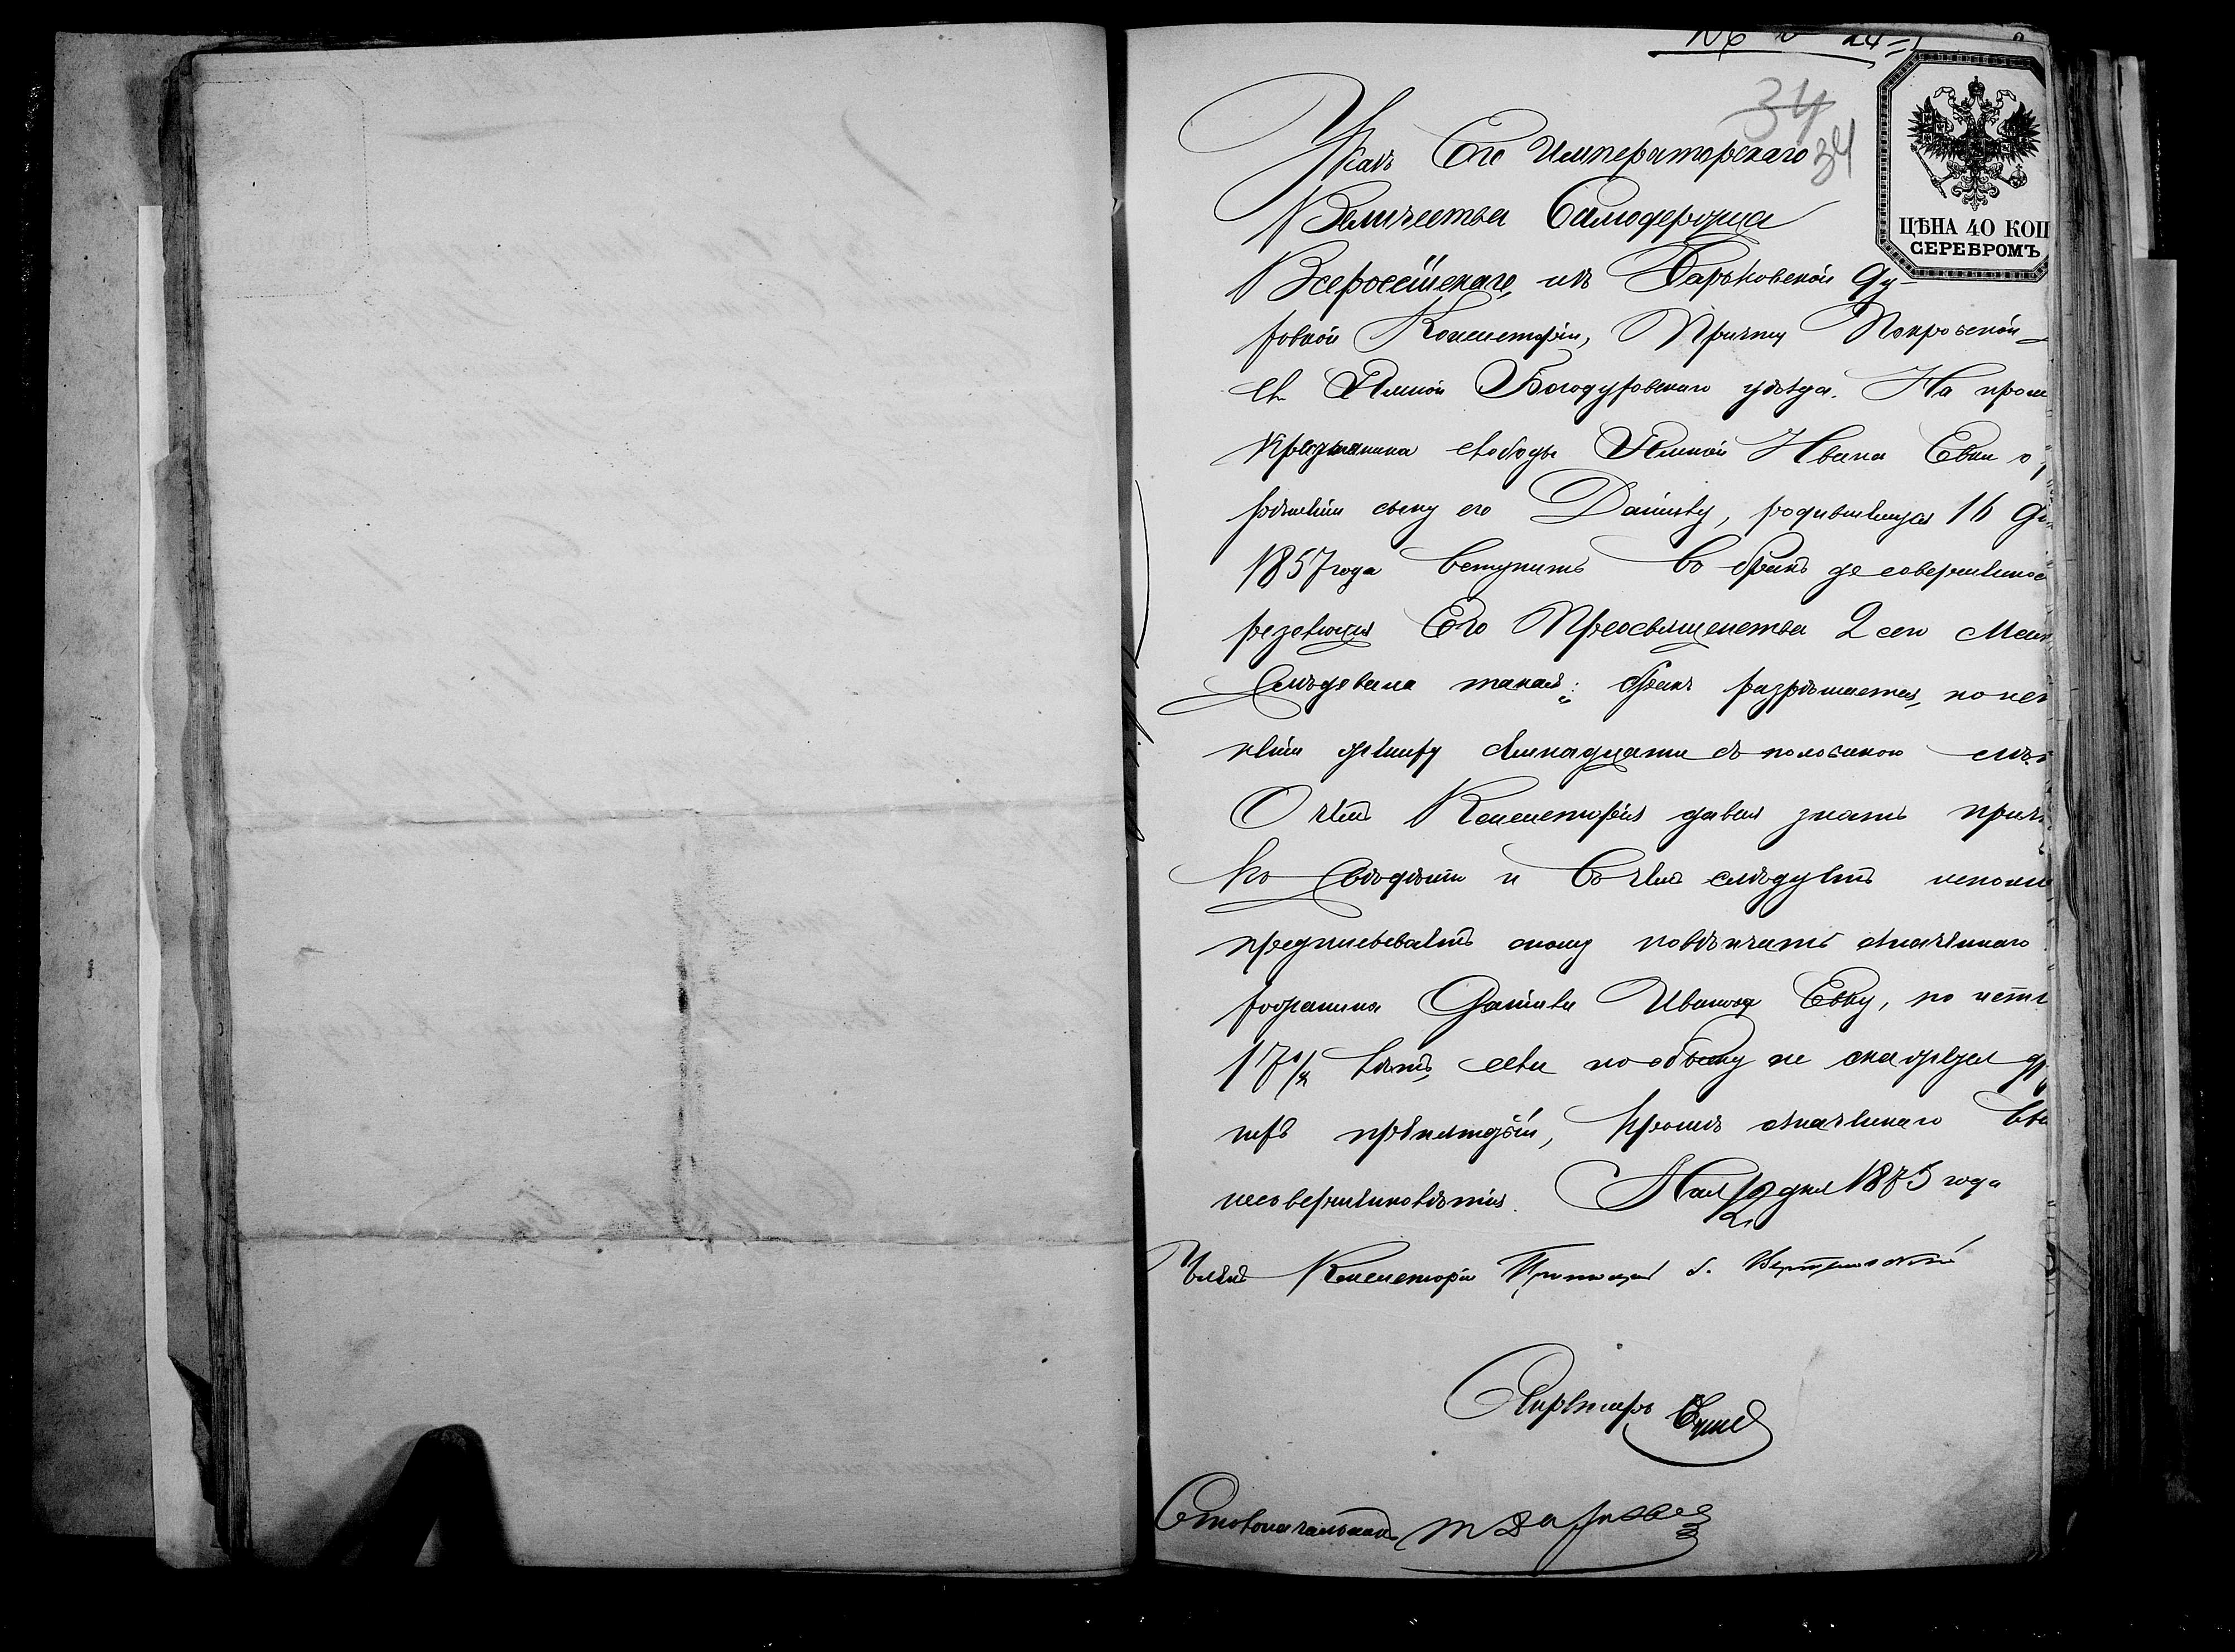 34
34
ЦѢНА 40 КОП
СЕРЕБРОМЪ
Указъ Его Императорскаго
Величества Самодержца
Всероссійскаго, изъ Харьковской Ду-
ховной Консисторіи, Причту Покровской
сл. Ямной Богодуховскаго уѣзда. На прош
крестьянина слободы Ямной Ивана Евки о
рѣшеніи сыну его Даніилу, родившемуся 16 Де
1857 года вступить въ бракъ до совершенно
резолюція Его Преосвященства 2 сего Мая
слѣдовала такая: „бракъ разрѣшается, по
ніи жениху семнадцати съ половиною лѣт
О чемъ Консисторія давая знать прич
къ свѣдѣнію и въ чемъ слѣдуетъ исполне
предписываетъ оному повѣнчать означеннаго
Даніила Иванова Евку, по исте
17 1/2 лѣтъ, если по обыску не окажется др
гихъ препятствій, кромѣ означеннаго
несовершеннолѣтія. Мая 19 дня 1875 года
21
Членъ Консисторіи Протоіерей
Секретарь
Столоначальникъ